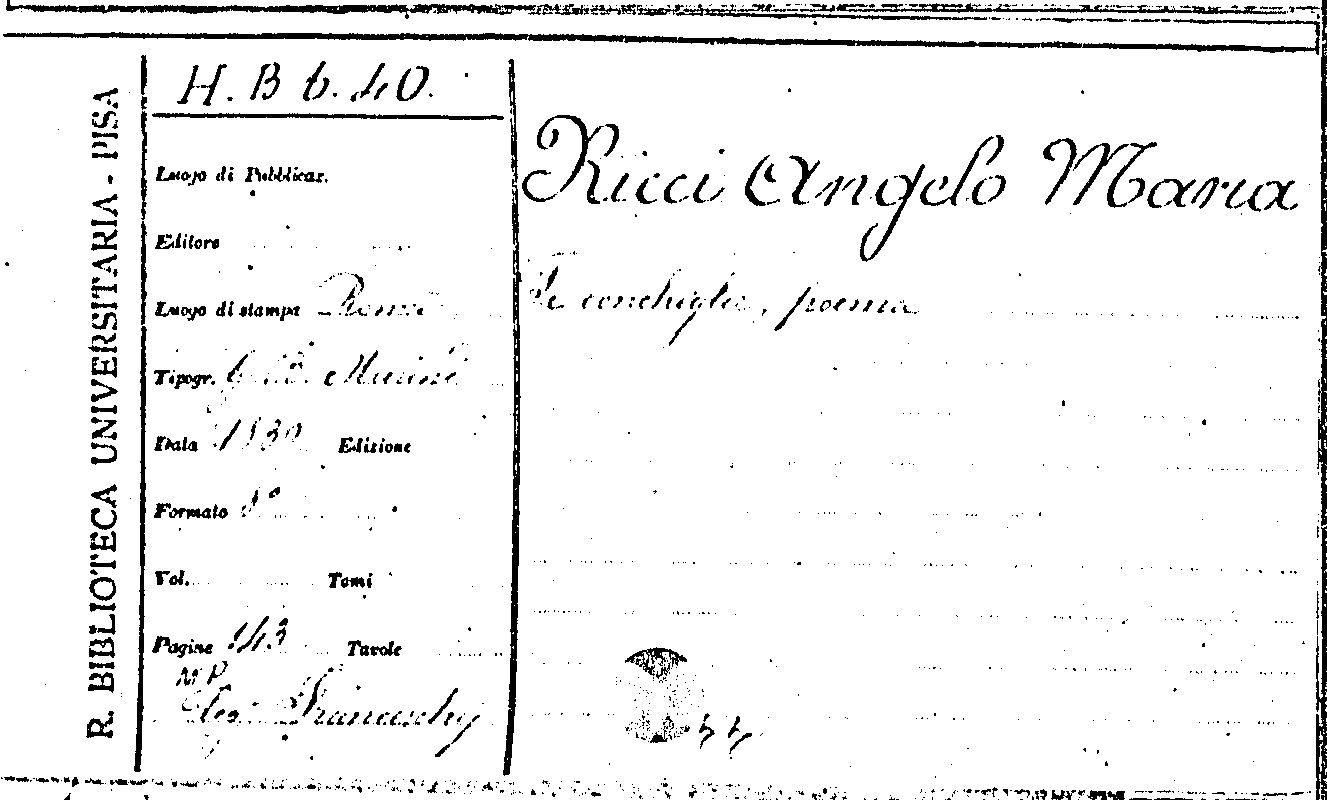 R. BIBLIOTECA UNIVERSITARIA - PISA
H. B b. 40.
Luogo di Pubblicaz.
Editore
Luogo di stampa Roma
Tipogr. Marini
Data 1830 Edizione
Formato 8°
Vol. Tomi
Pagine 143 Tavole
MP
Franceschi
Ricci Angelo Maria
Le conchiglie, poema